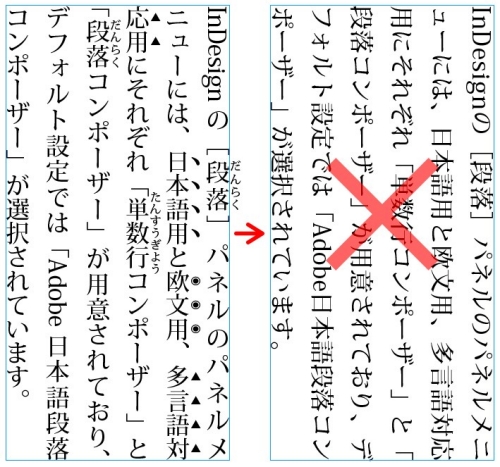 だんらく
InDesign の［段落］パネルのパネルメ
ニューには、日本語用と欧文用、多言語対
たんすうぎよう
応用にそれぞれ「単数行コンポーザー」と
だんらく
「段落コンポーザー」が用意されており、
デフォルト設定では「Adobe 日本語段落
コンポーザー」が選択されています。
InDesignの［段落］パネルのパネルメニ
ューには、日本語用と欧文用、多言語対応
用にそれぞれ「単数行コンポーザー」と「
段落コンポーザー」が用意されており、デ
フォルト設定では「Adobe日本語段落コン
ポーザー」が選択されています。